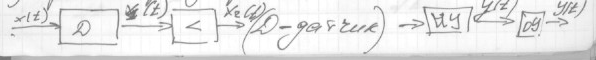 x(t) Д x₁(t) < x₂(t) (Д-датчик) → ИУ y(t) ОУ y(t)